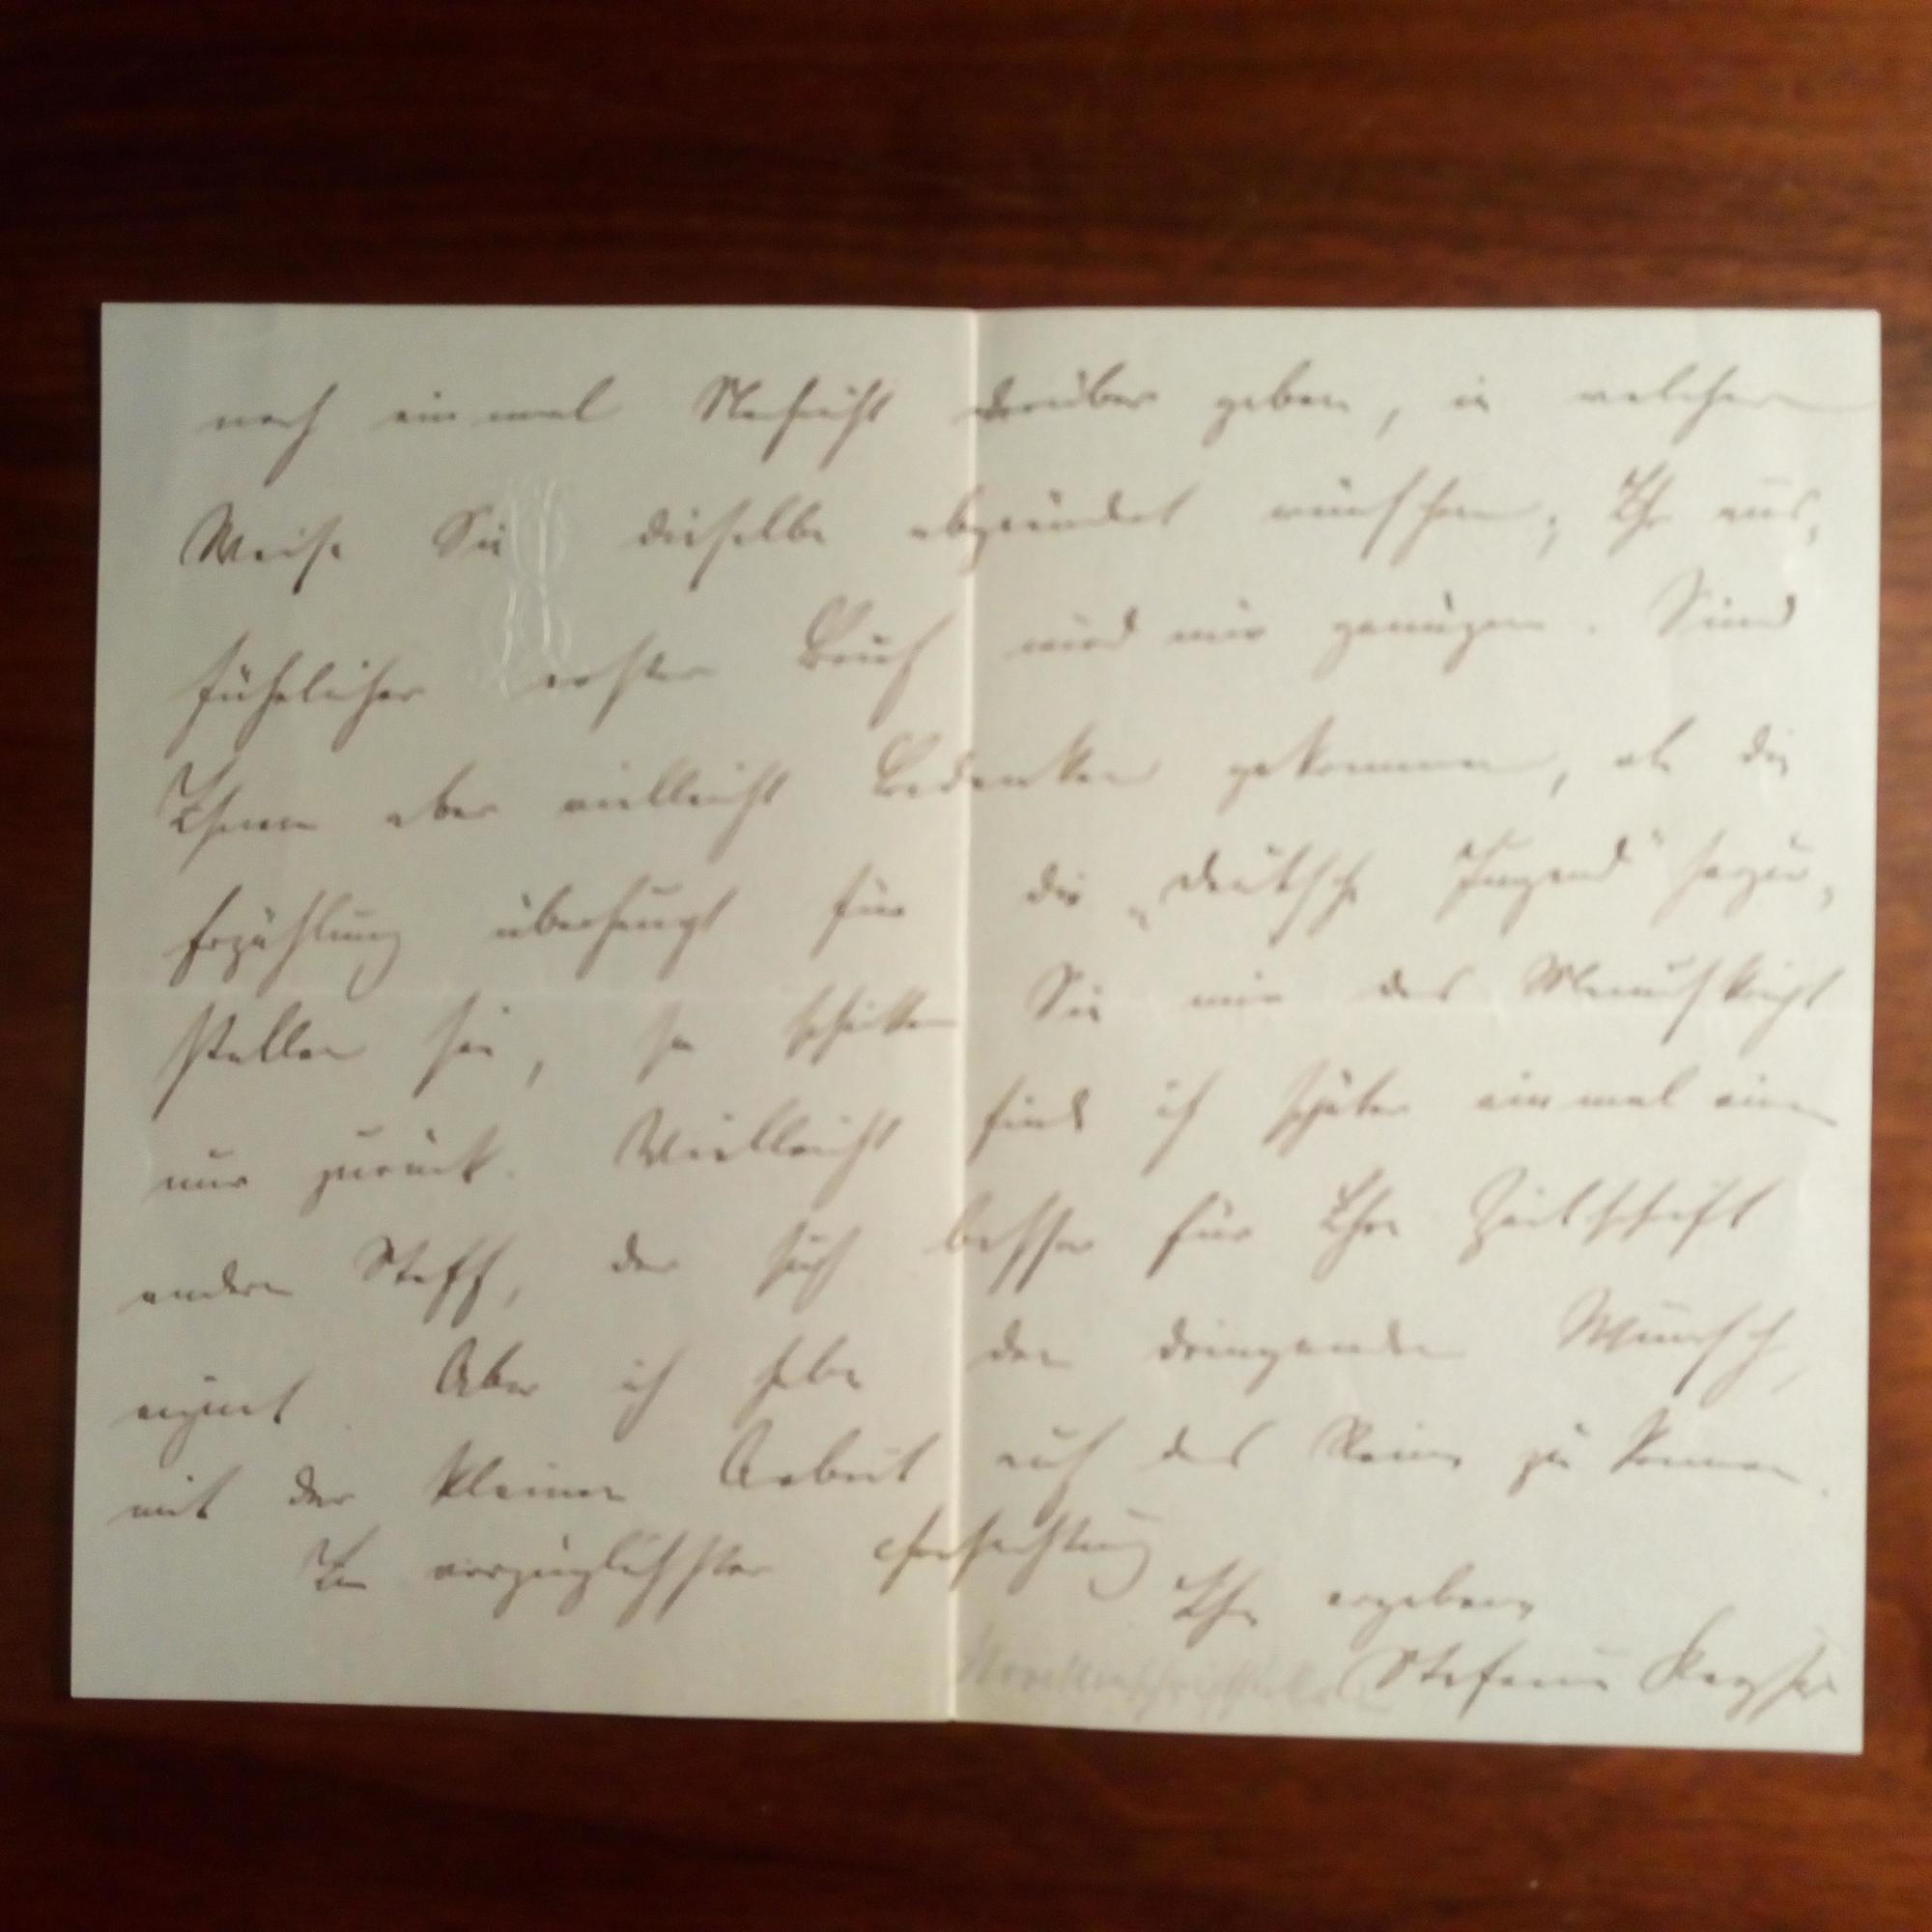 noch einmal Nachricht darüber geben, in welcher
Weise Sie dieselbe abgeändert wünschen; Ihr aus-
führlicher erster Brief wird mir genügen. Sind
Ihnen aber vielleicht Bedenken gekommen, ob die
Erzählung überhaupt für die „Deutsche Jugend" herzu-
stellen sei, so schicken Sie mir das Manuskript
nur zurück. Vielleicht finde ich später einmal einen
andern Stoff, der sich besser für Ihre Zeitschrift
eignet. Aber ich habe den dringenden Wunsch,
mit der kleinen Arbeit auf das Reine zu kommen.
In vorzüglichster Hochachtung
Ihre ergebene
Stefanie Keyser